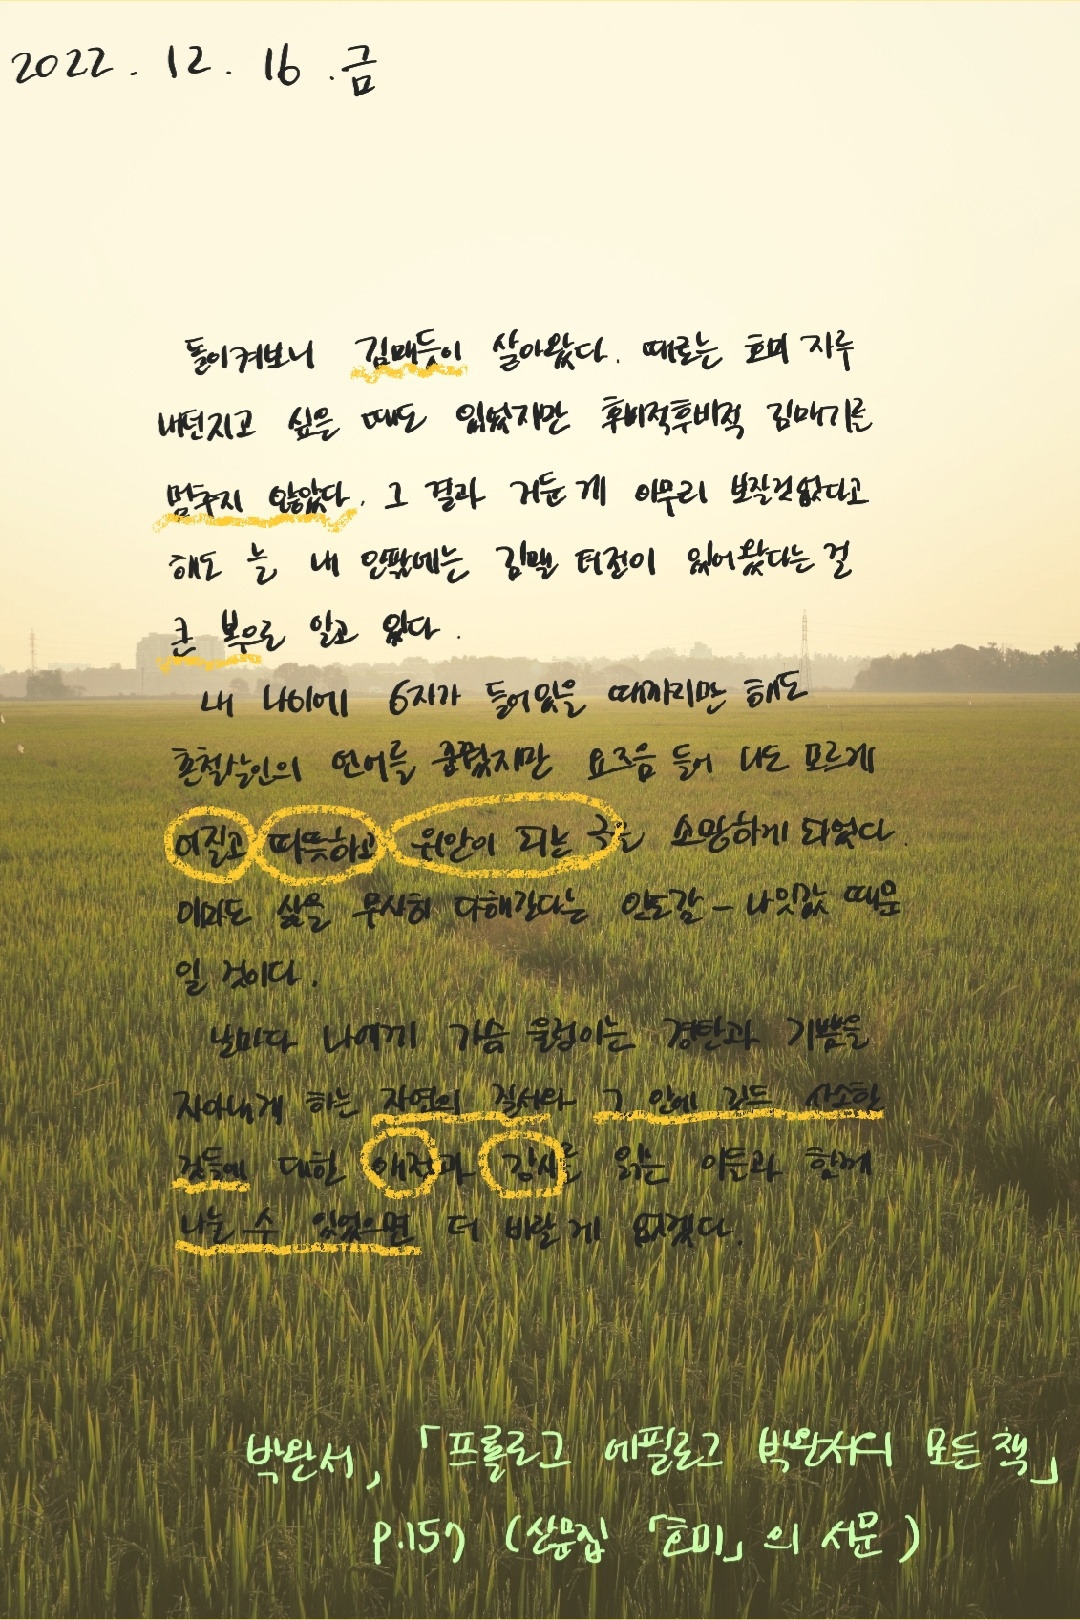 2022. 12. 16. 금
돌이켜보니 김매듯이 살아왔다. 때로는 호미 자루
내던지고 싶을 때도 있었지만 후비적후비적 김매기를
멈추지 않았다. 그 결과 거둔 게 아무리 보잘것없다고
해도 늘 내 안팎에는 김맬 터전이 있어왔다는 걸
큰 복으로 알고 있다.
내 나이에 6자가 들어있을 때까지만 해도
촌철살인의 언어를 꿈꿨지만 요즈음 들어 나도 모르게
어질고 따뜻하고 위안이 되는 글을 소망하게 되었다.
아마도 삶을 무사히 다해간다는 안도감 - 나잇값 때문
일 것이다.
날마다 나에게 가슴 울렁이는 경탄과 기쁨을
자아내게 하는 자연의 질서와 그 안에 깃든 사소한
것들에 대한 애정과 감사를 읽는 이들과 함께
나눌 수 있었으면 더 바랄 게 없겠다.
박완서, 「프롤로그 에필로그 박완서의 모든 책」
p.157 (산문집 「호미」의 서문)